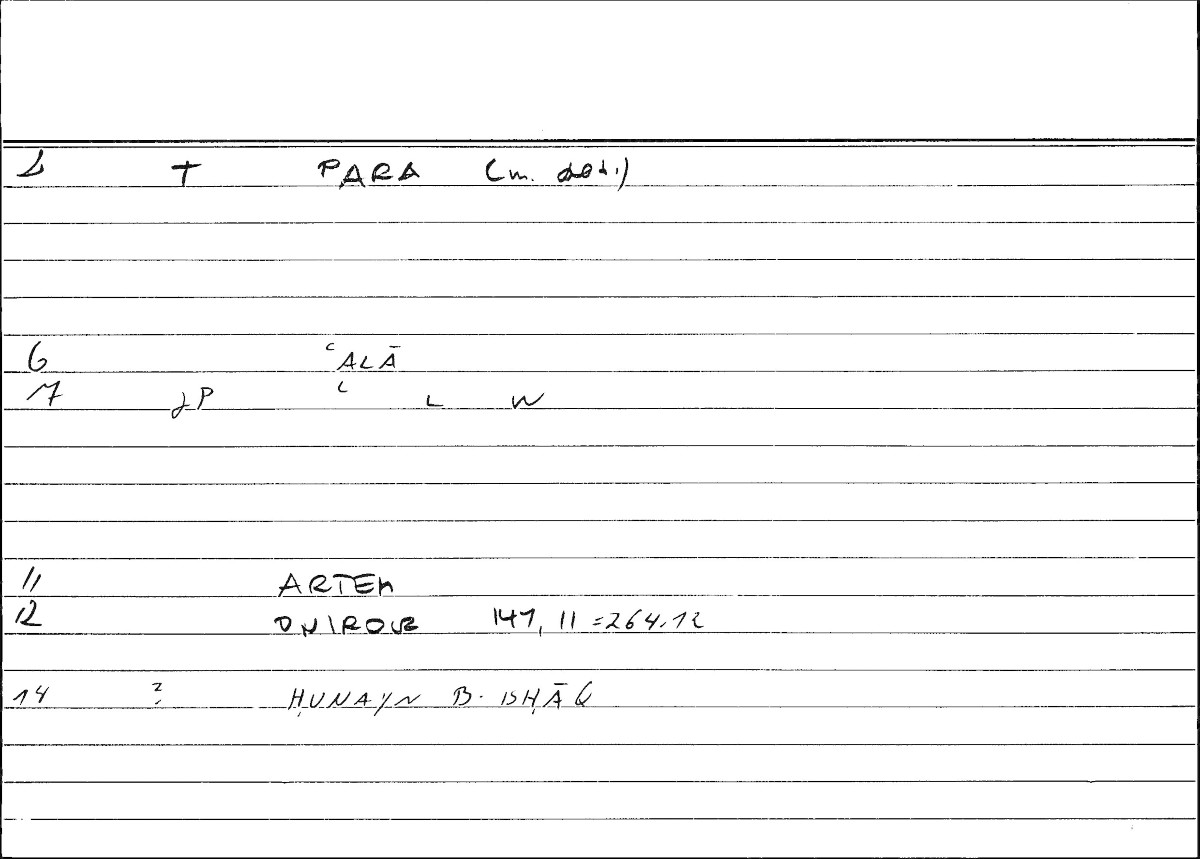 1 + PARA (m. dat.)
6 ʿALĀ
7 JP ʿ L W
11 ARTEM
12 ONIROCR 147, 11 = 264.12
14 ? ḤUNAYN B. ISḤĀQ